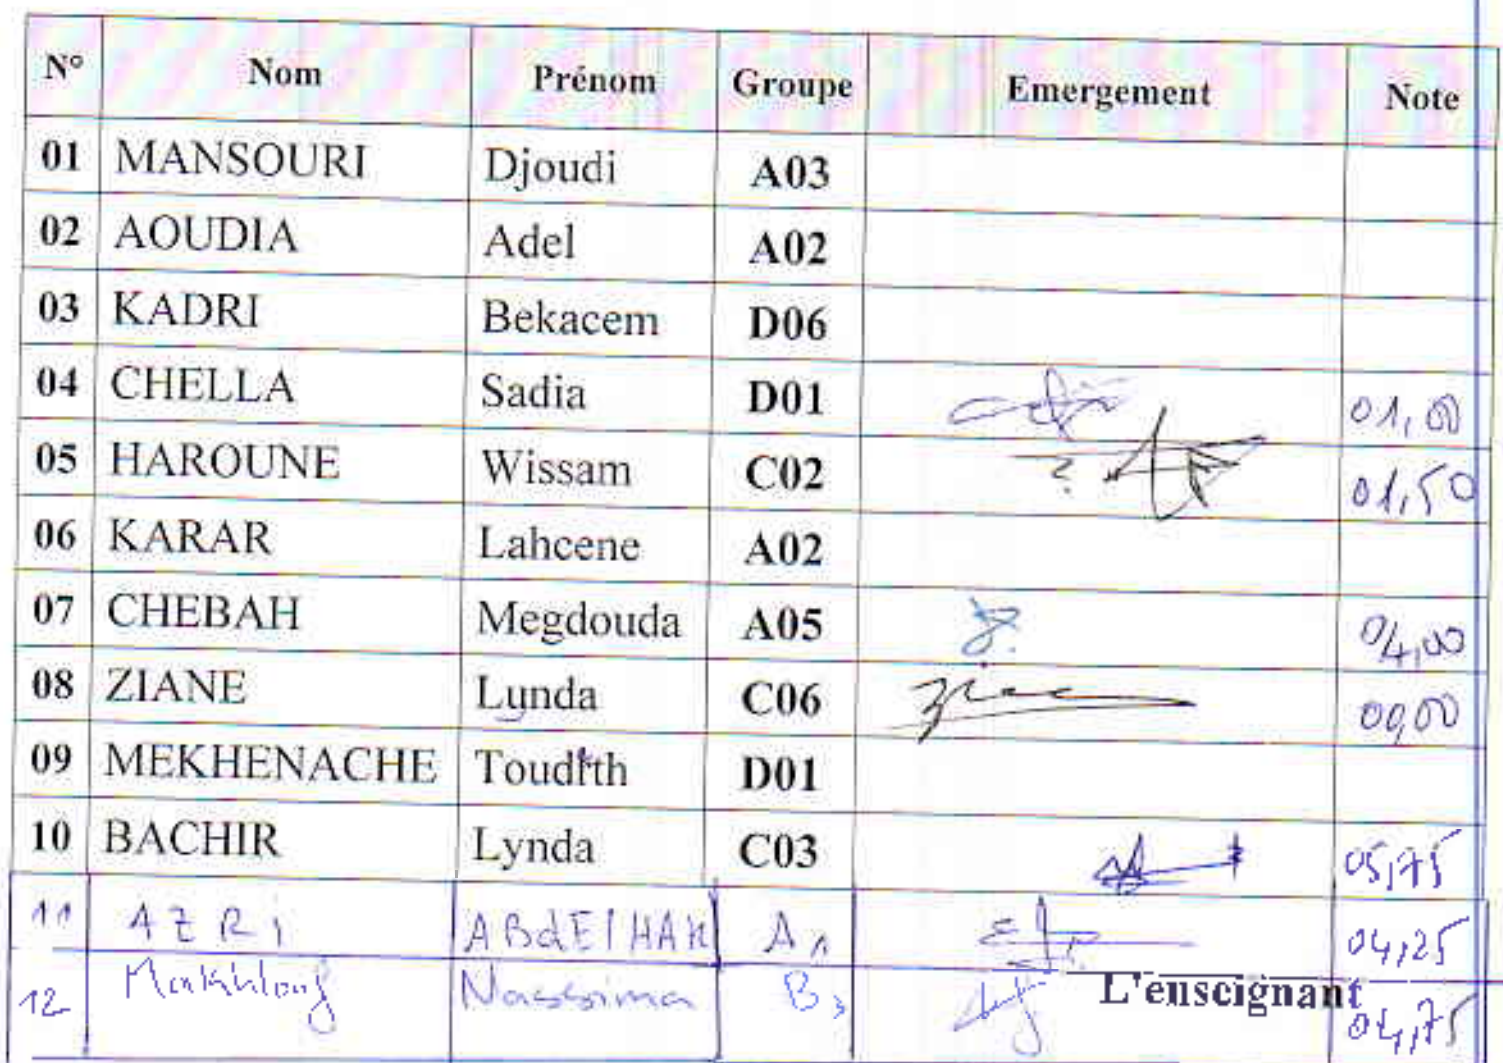 N° Nom Prénom Groupe Emergement Note
01 MANSOURI Djoudi A03
02 AOUDIA Adel A02
03 KADRI Bekacem D06
04 CHELLA Sadia D01 01,00
05 HAROUNE Wissam C02 ? 01,50
06 KARAR Lahcene A02
07 CHEBAH Megdouda A05 04,00
08 ZIANE Lynda C06 00,00
09 MEKHENACHE Toudith D01
10 BACHIR Lynda C03 05,75
11 AZRi ABdElHAK A1 04,25
12 Makhlouf Nassima B3 04,75
L'enseignant